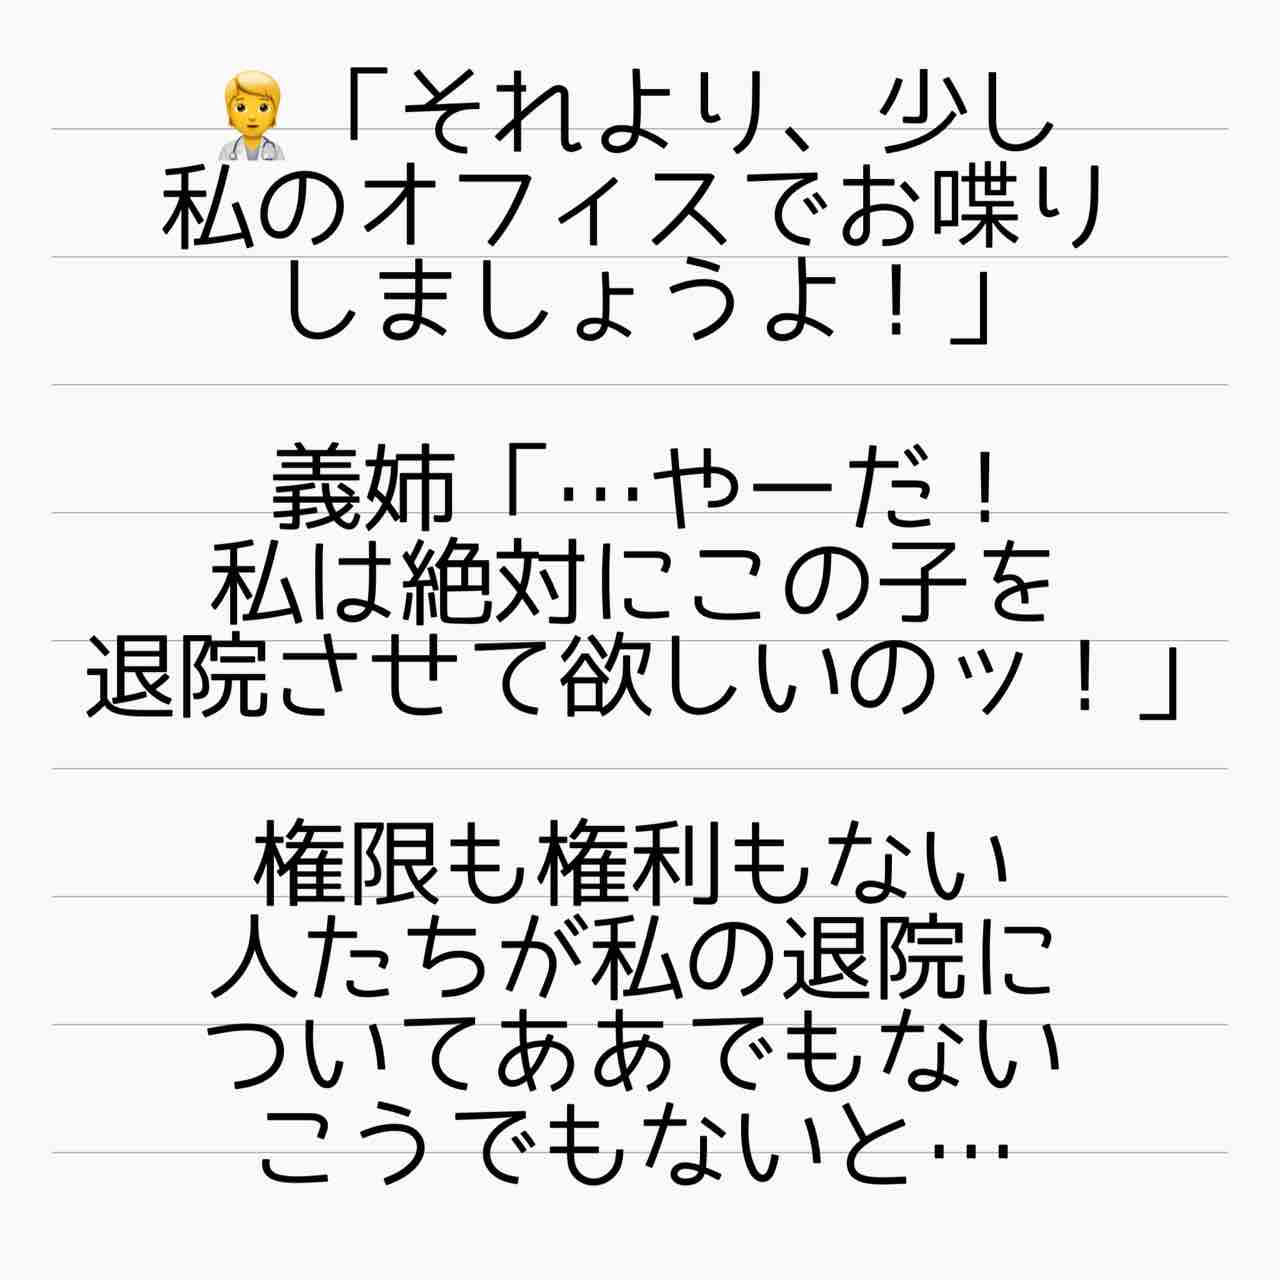 🧑‍⚕️「それより、少し
私のオフィスでお喋り
しましょうよ！」
義姉「…やーだ！
私は絶対にこの子を
退院させて欲しいのッ！」
権限も権利もない
人たちが私の退院に
ついてああでもない
こうでもないと…